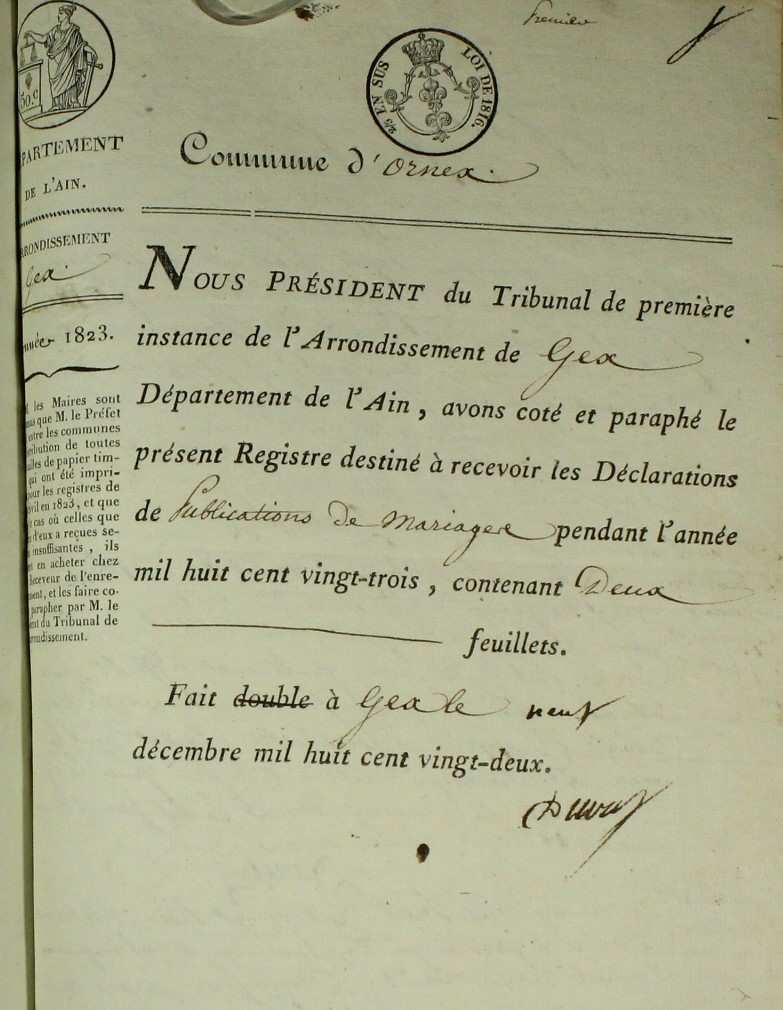 Premier
LOI DE 1816.
EN SUS
50.c
PARTEMENT
DE L'AIN.
RONDISSEMENT
Gex.
nnée 1823.
les Maires sont
que M. le Préfet
les communes
tribution de toutes
lles de papier tim-
qui ont été impri-
pour les registres de
vil en 1823, et que
cas où celles que
d'eux a reçues se-
insuffisantes, ils
en acheter chez
Receveur de l'enre-
ment, et les faire co-
parapher par M. le
ent du Tribunal de
rondissement.
Commune d'Ornex.
NOUS PRÉSIDENT du Tribunal de première
instance de l'Arrondissement de Gex
Département de l'Ain, avons coté et paraphé le
présent Registre destiné à recevoir les Déclarations
de Publications de Mariage pendant l'année
mil huit cent vingt-trois, contenant Deux
feuillets.
Fait double à Gex le neuf
décembre mil huit cent vingt-deux.